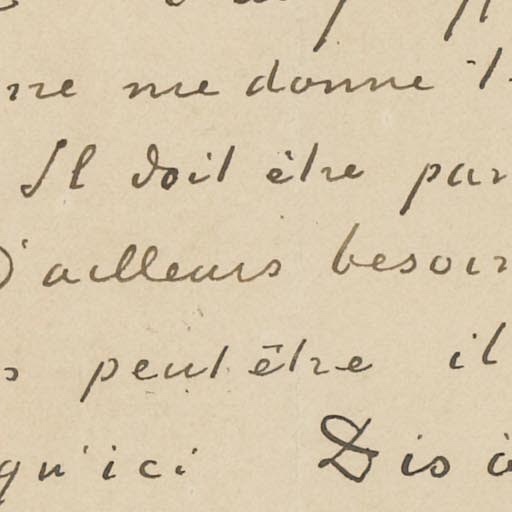 ne me donne
Il doit être par
D'ailleurs besoin
peut être il
qu'ici Dis